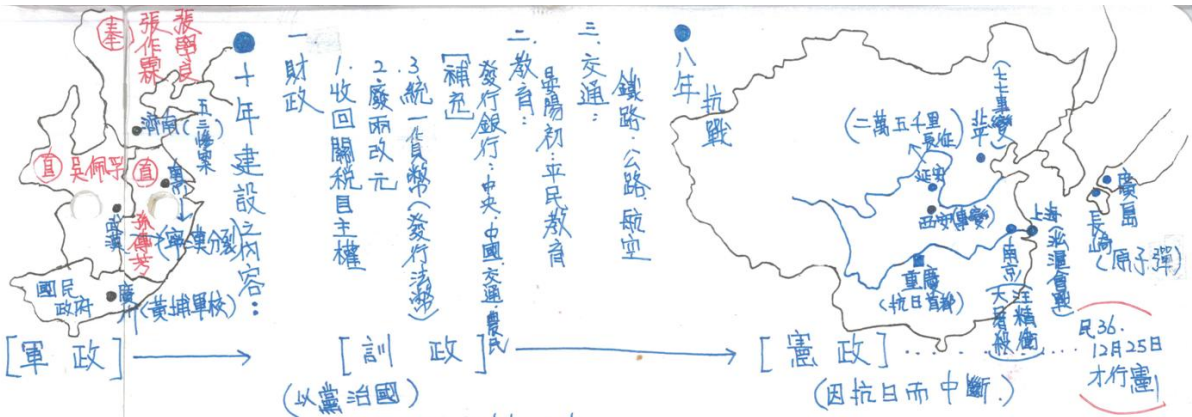 奉
張作霖
張學良
濟南(五三慘案)
直
吳佩孚
直
南京
武漢
孫傳芳
(寧漢分裂)
國民政府
廣州
(黃埔軍校)
●十年建設之內容:
一 財政
1.收回關稅自主權
2.廢兩改元
3.統一貨幣(發行法幣)
[補充]
發行銀行:中央.中國.交通.農民
二.教育:
晏陽初:平民教育
三.交通:
鐵路.公路.航空
●八年抗戰
(七七事變)
北平
(二萬五千里長征)
延安
西安(事變)
重慶
(抗日首都)
南京
大屠殺
汪精衛
上海(淞滬會戰)
廣島
長崎
(原子彈)
[軍政]
[訓政]
(以黨治國)
[憲政]......
(因抗日而中斷.)
民36.
12月25日
才行憲